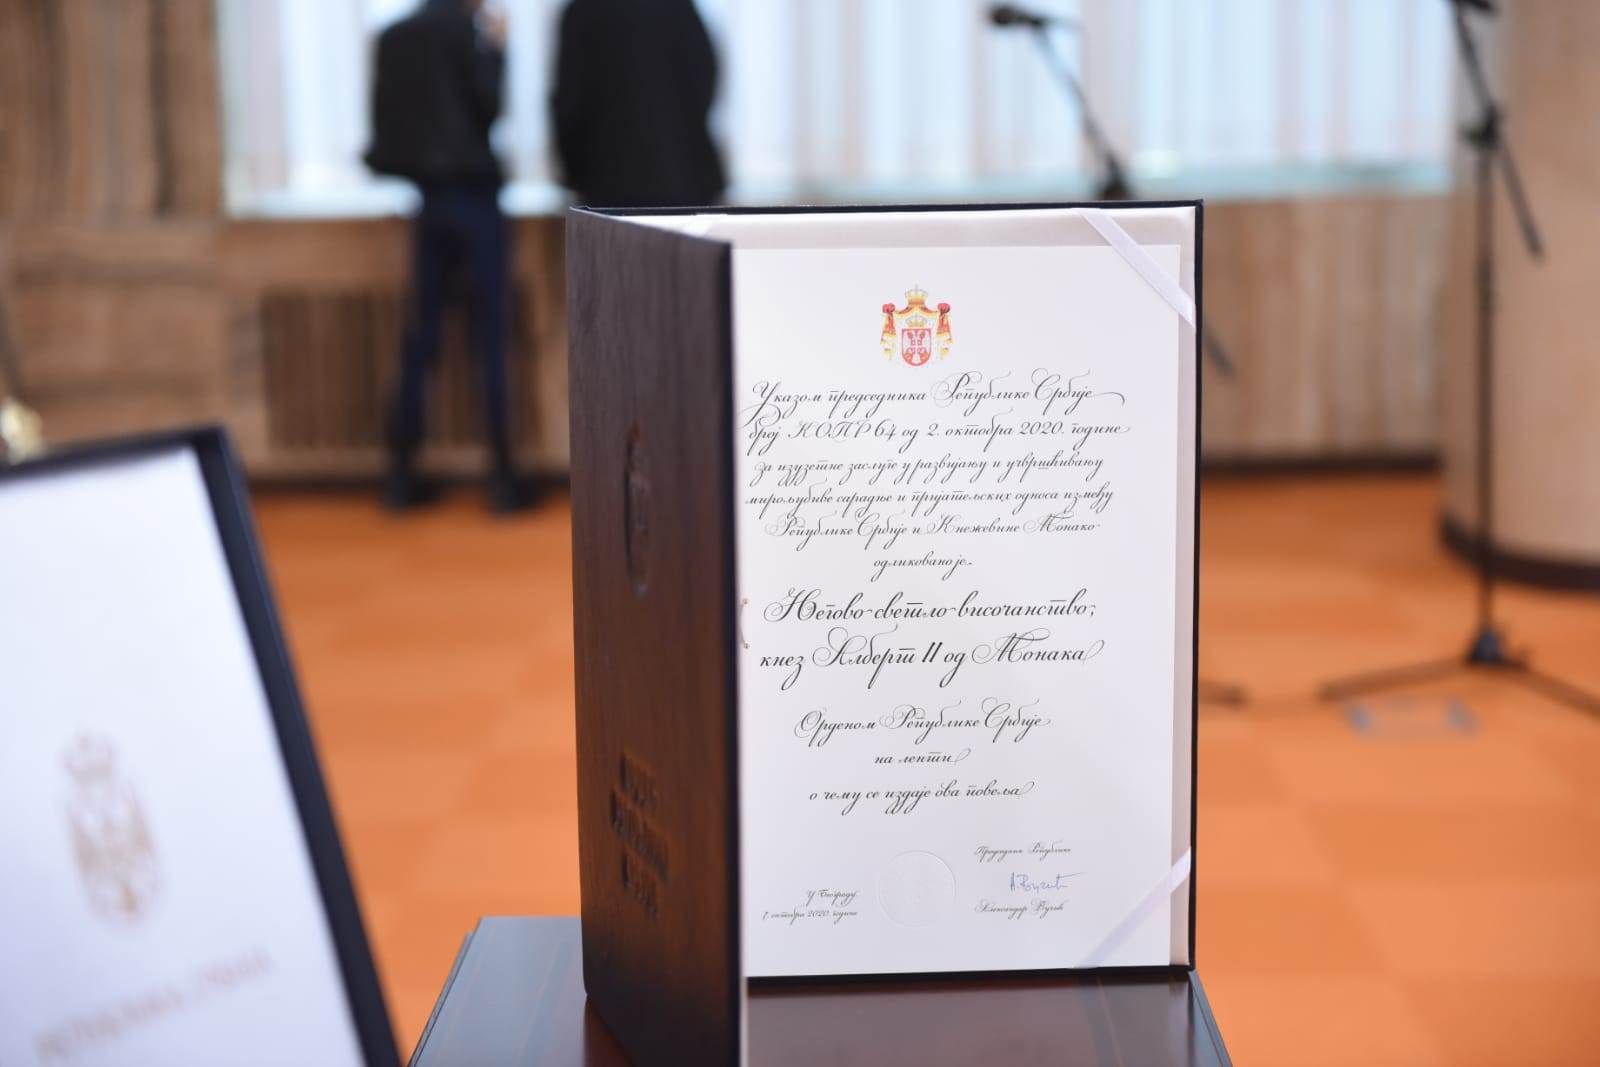 Указом председника Републике Србије
број КОПР 64 од 2. октобра 2020. године
за изузетне заслуге у развијању и учвршћивању
мирољубиве сарадње и пријатељских односа између
Републике Србије и Кнежевине Монако
одликовано је
Његово светло височанство,
кнез Алберт II од Монака
Орденом Републике Србије
на ленти
о чему се издаје ова повеља
Председник Републике
А. Вучић
Александар Вучић
У Београду,
7. октобра 2020. године
РЕПУБЛИКА СРБИЈА